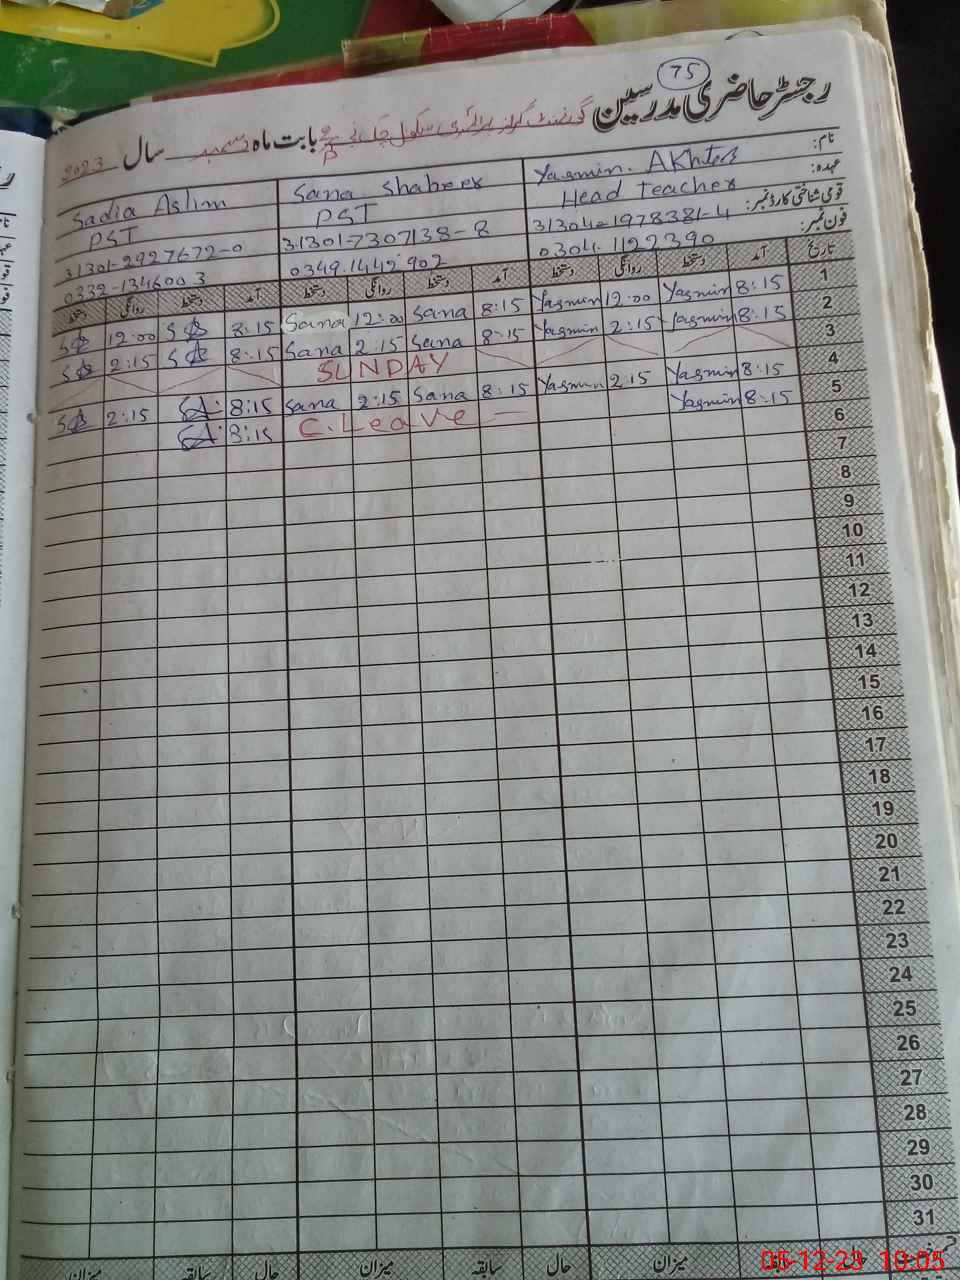 75
رجسٹر حاضری مدرسین گورنمنٹ گرلز پرائمری سکول بابت ماہ دسمبر سال 2023
نام: Yasmin. AKhter Sana Shabeer Sadia Aslim
عہدہ: Head teacher PST PST
قومی شناختی کارڈ نمبر: 31304-1978381-4 31301-7307138-8 31301-2927672-0
فون نمبر: 0304.1122390 0349.1442902 0332-1346003
تاریخ آمد دستخط روانگی دستخط آمد دستخط روانگی دستخط آمد دستخط روانگی دستخط
1 8:15 Yasmin 12:00 Yasmin 8:15 Sana 12:00 Sana 8:15 12:00
2 8:15 Yasmin 2:15 Yasmin 8:15 Sana 2:15 Sana 8:15 2:15
3 SUNDAY
4 8:15 Yasmin 2:15 Yasmin 8:15 Sana 2:15 Sana 8:15 2:15
5 8:15 Yasmin C.Leave 8:15
6
7
8
9
10
11
12
13
14
15
16
17
18
19
20
21
22
23
24
25
26
27
28
29
30
31
حال سابقہ میزان حال سابقہ میزان
05-12-23 10:05